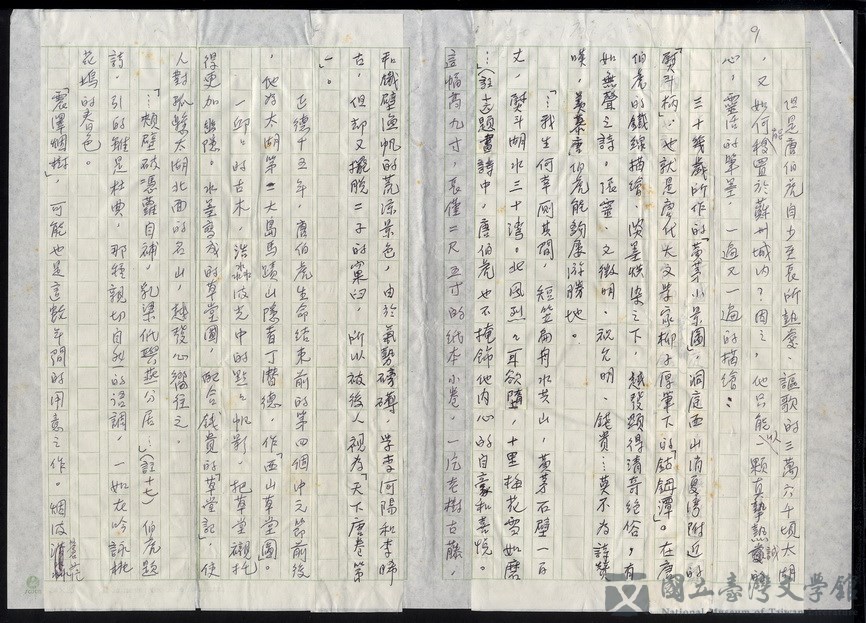 9
但是唐伯虎自少至長所熱愛、謳歌的三萬六千頃太湖
，又如何能移置於蘇州城內？因之，他只能以一顆真摯熱誠的
心，靈活的筆墨，一遍又一遍的描繪：
三十幾歲所作的「黃茅小景圖」，洞庭西山消夏灣附近的
「熨斗柄」；也就是唐代大文學家柳子厚筆下的「鈷鉧潭」。在唐
伯虎的鐵線描繪、淡墨烘染之下，越發顯得清奇絕俗，有
如無聲之詩，張靈、文徵明、祝允明、錢貴…莫不為詩讚
嘆，羨慕唐伯虎能夠屢游勝地。
「…我生何幸厠其間，短笠扁舟水共山，黃茅石壁一百
丈，熨斗湖水三十灣。北風烈烈耳欲墮，十里梅花雪如磨
…」（註十六）題畫詩中，唐伯虎也不掩飾他內心的自豪和喜悅。
這幅高九寸，長僅二尺五寸的紙本小卷，一片老樹古藤，
和儀壁漁帆的荒涼景色，由於氣勢磅礴，學李河陽和李晞
古，但却又擺脫二子的窠臼，所以被後人視為「天下唐卷第
一」。
正德十五年，唐伯虎生命結束前的第四個中元節前後
，他為太湖第二大島馬蹟山隱者丁潛德，作「西山草堂圖」。
一邱一邱的古木，浩淼波光中的點點帆影，把草堂襯托
得更加幽隱。水墨寫成的草堂圖，配合錢貴的「草堂記」，使
人對孤懸太湖北面的名山，轉發心嚮往之。
「…頹壁破慿蘿自補，乳梁低與燕分居…」（註十七）伯虎題
詩，引的雖是杜典，那種親切自然的語調，一如在吟詠桃
花塢的春色。
「震澤烟樹」，可能也是這幾年間的用意之作。烟波